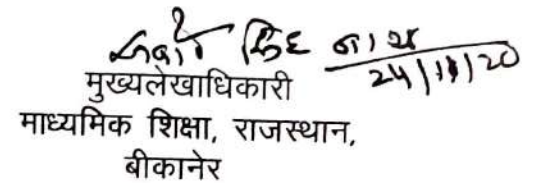 सिंह
24/11/20
मुख्यलेखाधिकारी
माध्यमिक शिक्षा, राजस्थान,
बीकानेर